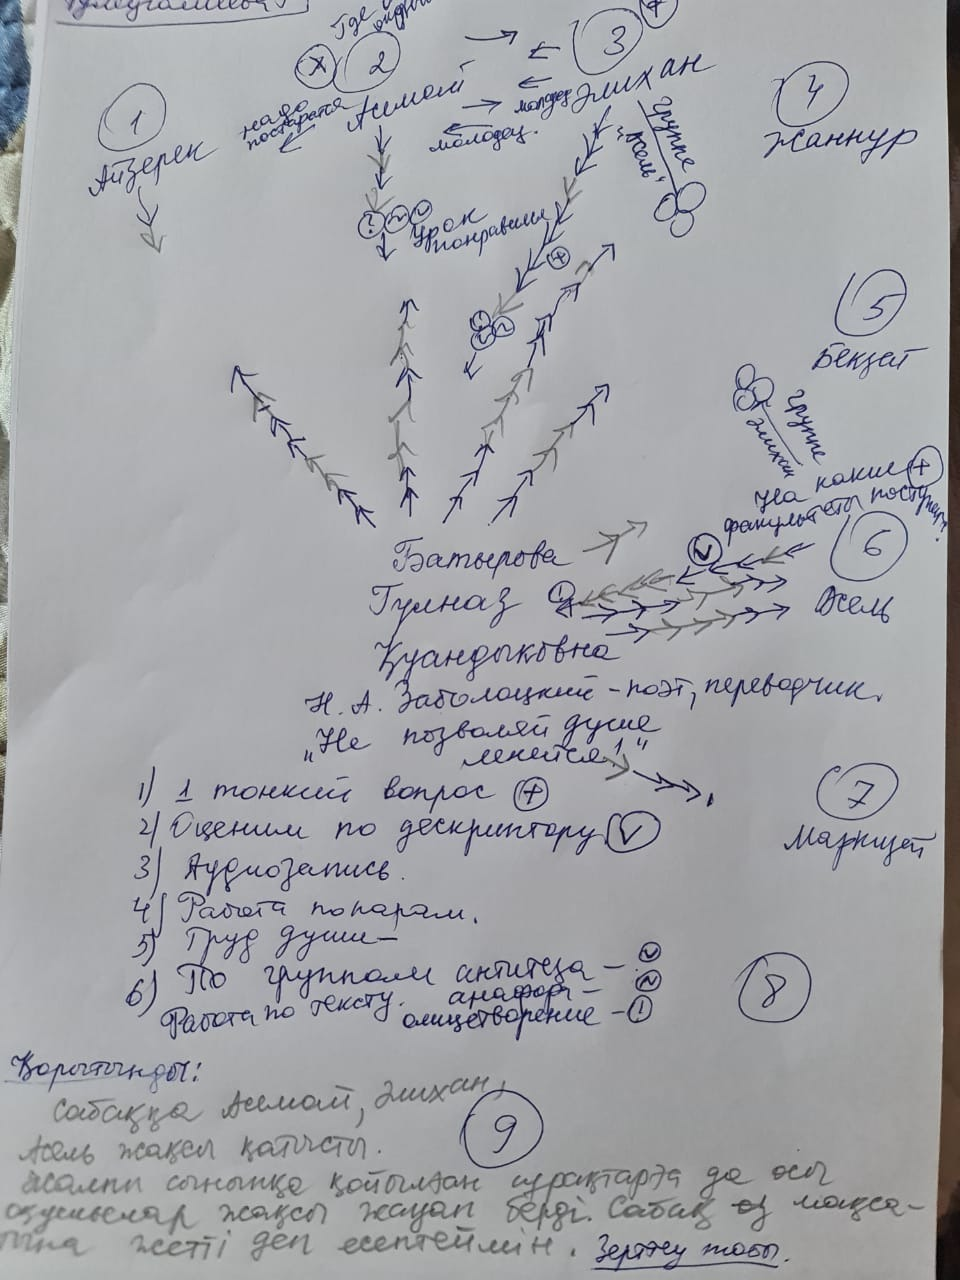 Где
1
2
3
4
Айзерек
надо
постаратся
Асылай
молодец.
молодец
Әлихан
группе
"Жель"
Жаннур
Урок
понравился
5
Бекзет
группе
Әлихан
На какие +
факультеты поступ
6
Жель
Батырова
Гулназ
Қуандыковна
Н. А. Заболоцкий - поэт, переводчик.
"Не позволяй душе
ленится!"
7
1) 1 тонкий вопрос +
2) Оценим по дескриптору V
3) Аудиозапись.
4) Работа по парам.
5) Труд души -
6) По группам антитеза -
анафора -
Работа по тексту. олицетворение - !
8
Қорытынды:
Сабаққа Асылай, Әлихан,
Жель жақсы қатысты.
9
Жалпы сыныпқа қойылған сұрақтарға да осы
оқушылар жақсы жауап берді. Сабақ өз мақса-
тына жетті деп есептеймін. Зерттеу тобы.